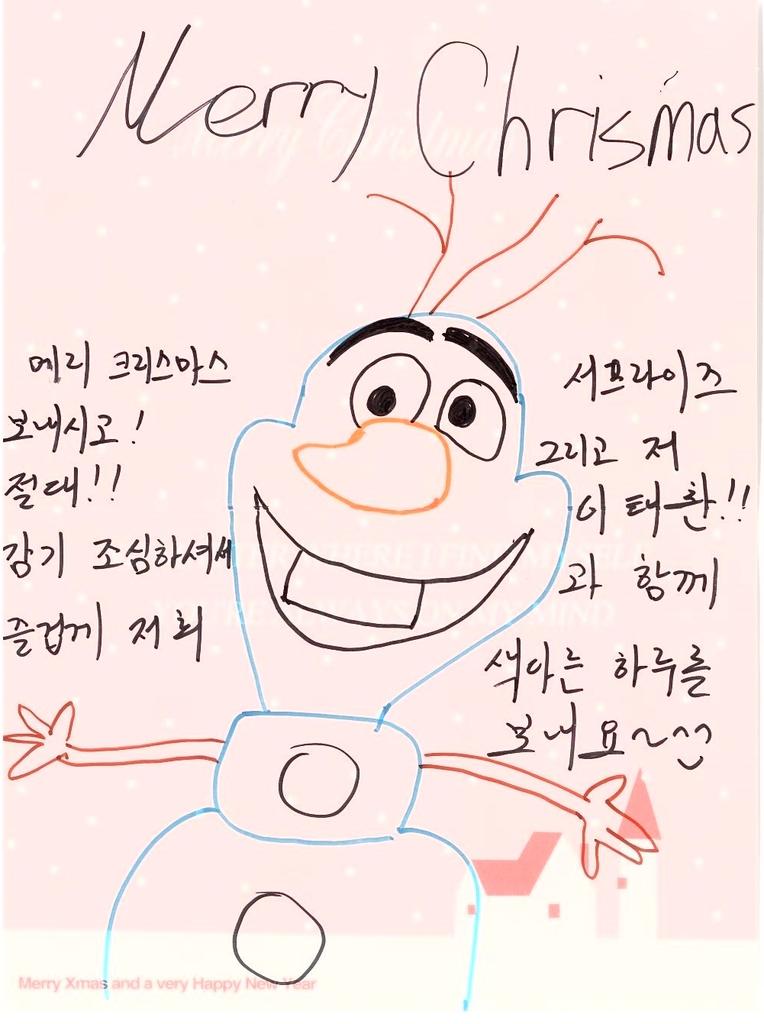 Merry Chrismas
메리 크리스마스
보내시고!
절대!!
감기 조심하셔서
즐겁게 저희
서프라이즈
그리고 저
이태환!!
과 함께
색다른 하루를
보내요~^^
Merry Xmas and a very Happy New Year